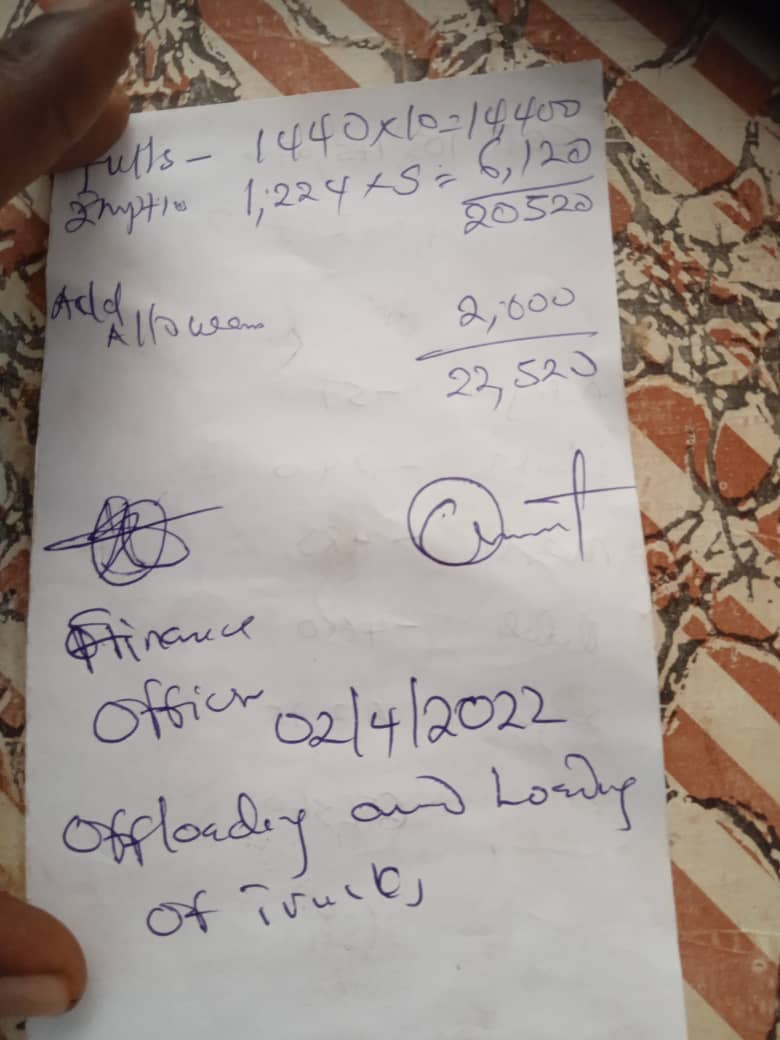 Fulls - 1440x10=14,400
Empties 1,224 x 5 = 6,120
20520
Add
Allowance 2,000
22,520
Finance
Officer 02/4/2022
Offloading and Loading
of Trucks